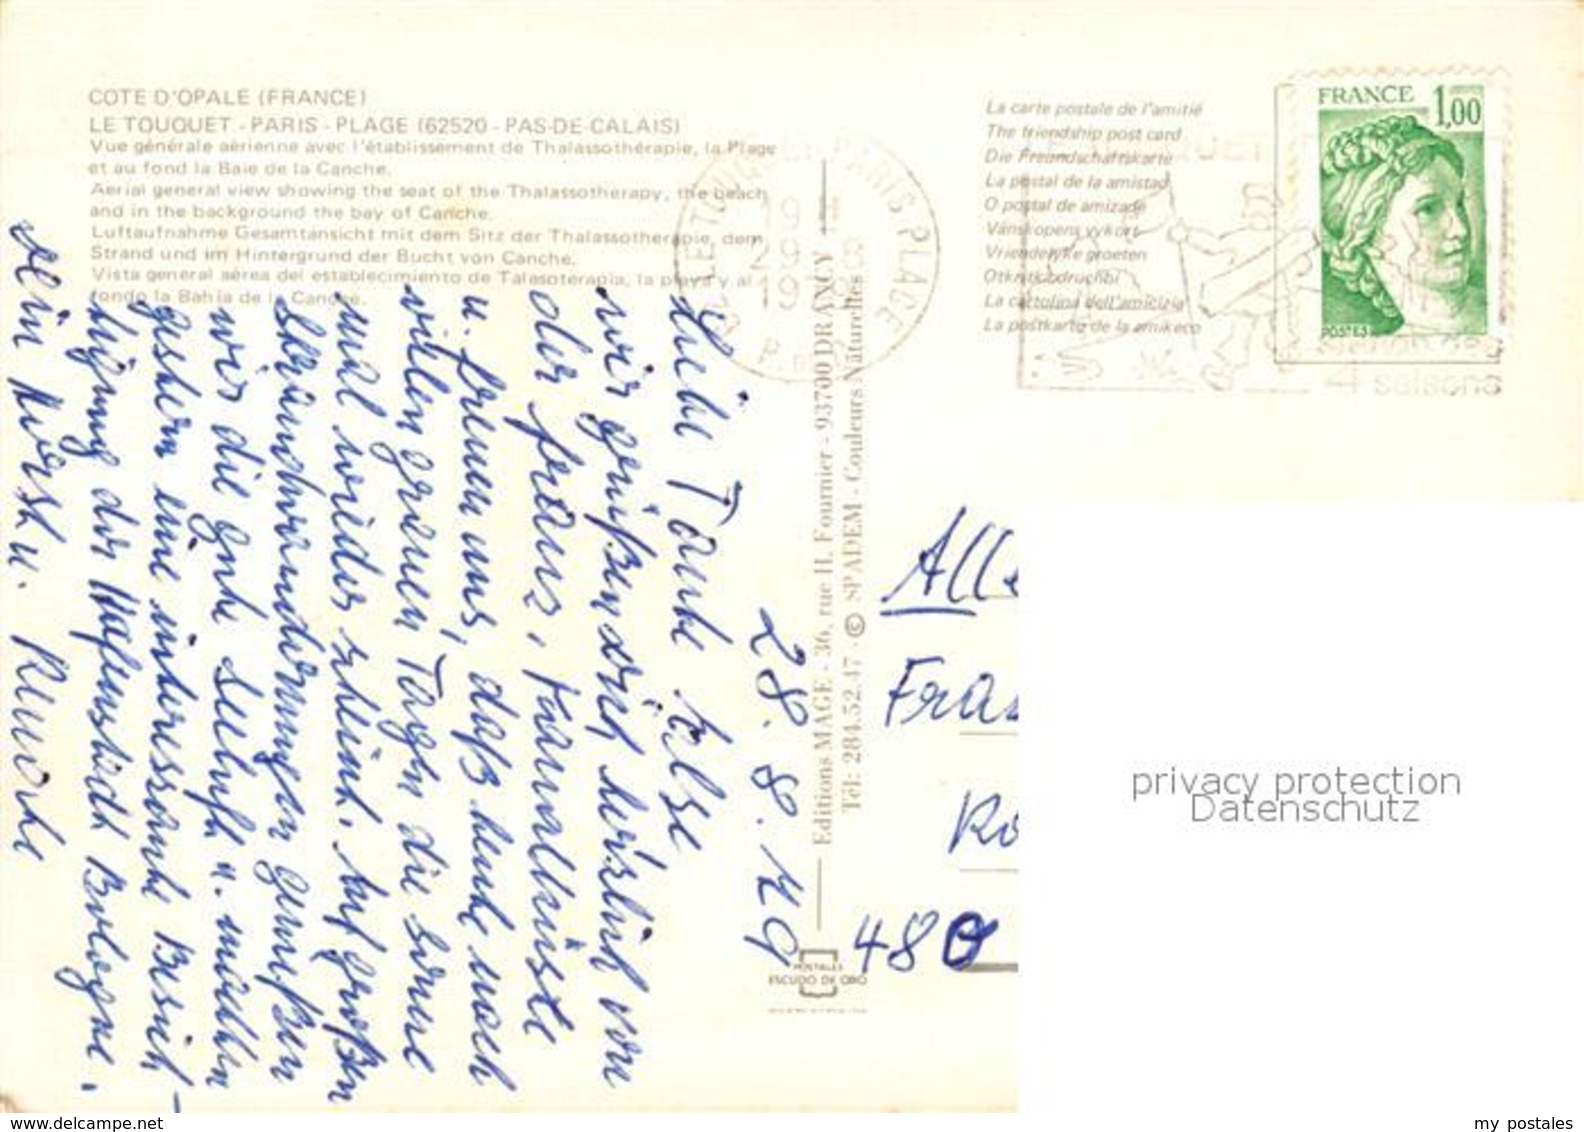 COTE D'OPALE (FRANCE)
LE TOUQUET - PARIS - PLAGE (62520 - PAS-DE-CALAIS)
Vue générale aérienne avec l'établissement de Thalassothérapie, la Plage
et au fond la Baie de la Canche.
Aerial general view showing the seat of the Thalassotherapy, the beach
and in the background the bay of Canche.
Luftaufnahme Gesamtansicht mit dem Sitz der Thalassotherapie, dem
Strand und im Hintergrund der Bucht von Canche.
Vista general aérea del establecimiento de Talasoterapia, la playa y al
fondo la Bahía de la Canche.
La carte postale de l'amitié
The friendship post card
Die Freundschaftskarte
La postal de la amistad
O postal de amizade
Vänskapens vykort
Vriendelyke groeten
La cartolina dell'amicizia
La postkarto de la amikeco
FRANCE 1,00
POSTES
LE TOUQUET PARIS PLAGE
4 saisons
Editions MAGE - 36, rue H. Fournier - 93700 DRANCY
Tél: 284.52.47 - © SPADEM - Couleurs Naturelles
POSTALES
ESCUDO DE ORO
28. 8. 79
Liebe Tante Else
wir grüßen dich herzlich von
der franz. Kanalküste
u. freuen uns, daß heute nach
vielen grauen Tagen die Sonne
mal wieder scheint. Auf großen
Strandwanderungen genießen
wir die gute Seeluft u. machten
gestern eine interessante Besich-
tigung der Hafenstadt Bologne.
Dein Horst u.
Fra
480
privacy protection
Datenschutz
www.delcampe.net
my postales